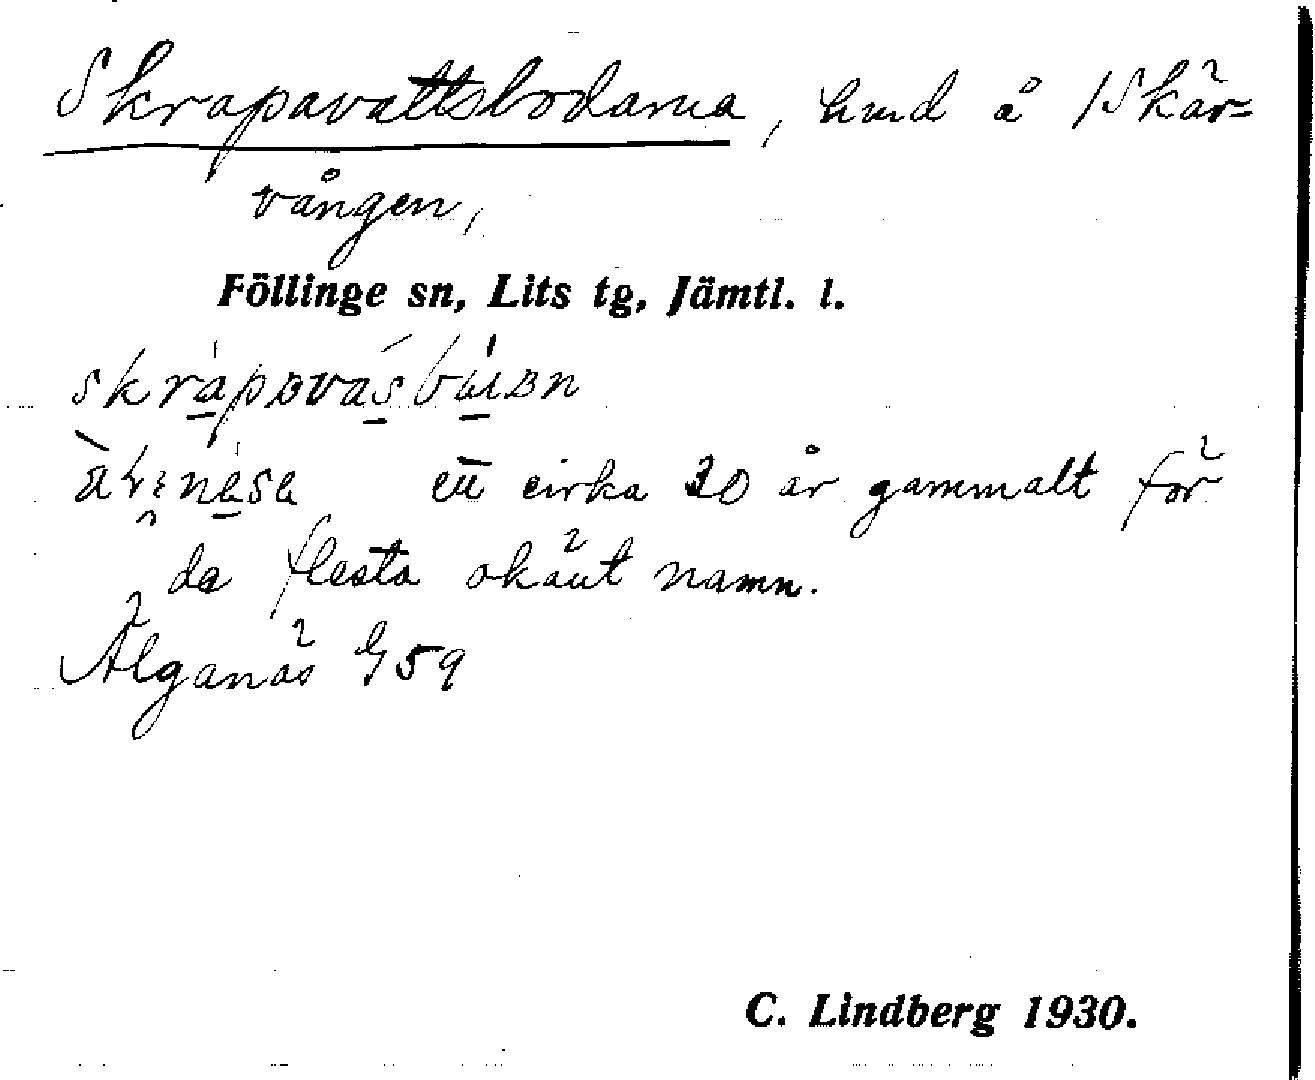 Skrapavattsbodarna, hmd å 1 Skär=
vången,
Föllinge sn, Lits tg, Jämtl. l.
ett cirka 30 år gammalt för
de flesta okänt namn.
Älganäs G 59
C. Lindberg 1930.